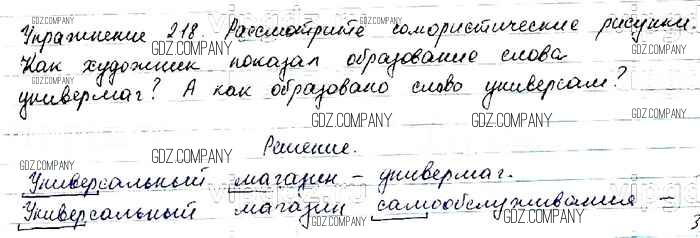 Упражнение 218. Рассмотрите юмористические рисунки.
Как художник показал образование слова
универмаг? А как образовано слово универсам?
Решение.
Универсальный магазин – универмаг.
Универсальный магазин самообслуживания –
GDZ.COMPANY
GDZ.COMPANY
GDZ.COMPANY
GDZ.COMPANY
GDZ.COMPANY
GDZ.COMPANY
GDZ.COMPANY
GDZ.COMPANY
GDZ.COMPANY
GDZ.COMPANY
GDZ.COMPANY
GDZ.COMPANY